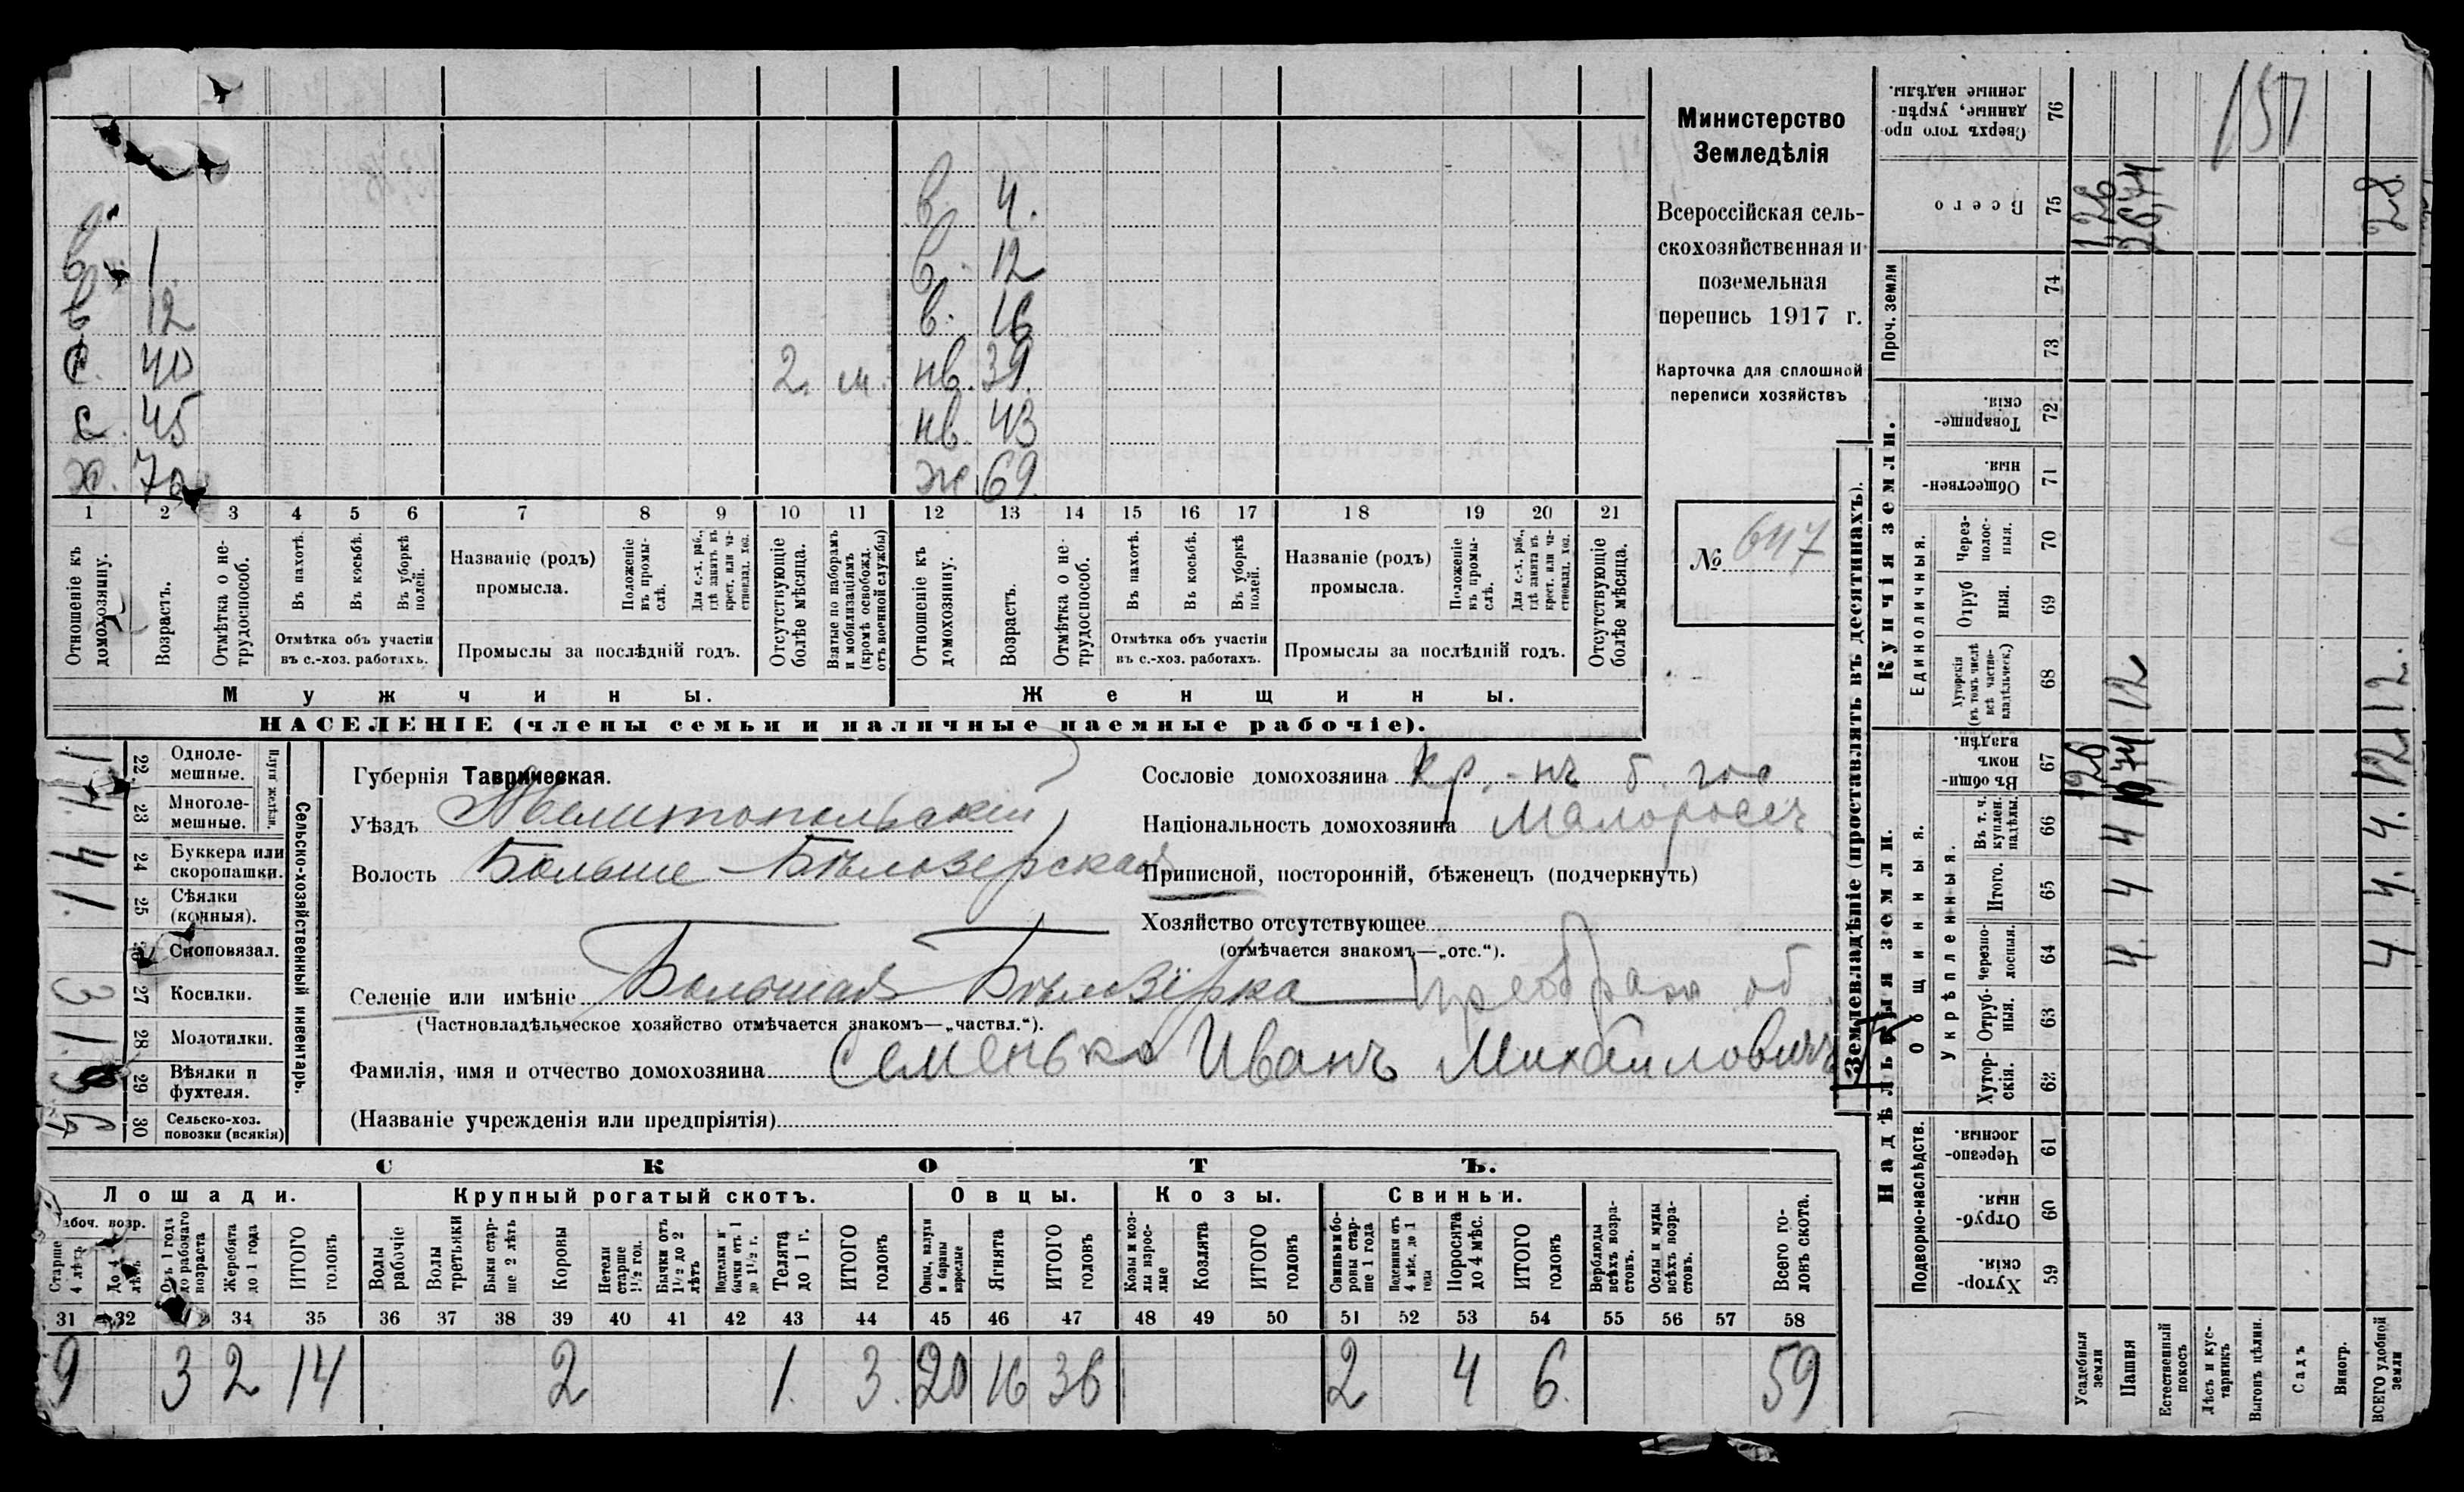 Министерство
Земледѣлія
Всероссійская сель-
скохозяйственная и
поземельная
перепись 1917 г.
Карточка для сплошной
переписи хозяйствъ
№ 647
157
в. 4.
в. 1 в. 12
в 12 в. 16
с. 40 2. м. нв. 39.
с. 45 нв. 43
х. 70 ж. 69.
1 2 3 4 5 6 7 8 9 10 11 12 13 14 15 16 17 18 19 20 21
Отношеніе къ домохозяину.
Возрастъ.
Отмѣтка о не-трудоспособ.
Въ пахотѣ.
Въ косьбѣ.
Въ уборкѣ полей.
Отмѣтка объ участіи
въ с.-хоз. работахъ.
Названіе (родъ)
промысла.
Положеніе въ промы-слѣ.
Для с.-х. раб., гдѣ занятъ въ крест. или ча-стновлад. хоз.
Промыслы за послѣдній годъ.
Отсутствующіе болѣе мѣсяца.
Взятые по наборамъ и мобилизаціямъ (кромѣ освобожд. отъ военной службы)
Отношеніе къ домохозяину.
Возрастъ.
Отмѣтка о не-трудоспособ.
Въ пахотѣ.
Въ косьбѣ.
Въ уборкѣ полей.
Отмѣтка объ участіи
въ с.-хоз. работахъ.
Названіе (родъ)
промысла.
Положеніе въ промы-слѣ.
Для с.-х. раб., гдѣ занята въ крест. или ча-стновлад. хоз.
Промыслы за послѣдній годъ.
Отсутствующіе болѣе мѣсяца.
Мужчины. Женщины.
НАСЕЛЕНІЕ (члены семьи и наличные наемные рабочіе).
Сельско-хозяйственный инвентарь.
Плуги желѣзн.
22 Одноле-мешные. 1
23 Многоле-мешные. 1
24 Буккера или скоропашки. 4
25 Сѣялки (конныя). 1.
26 Сноповязал.
27 Косилки. 3
28 Молотилки. 1
29 Вѣялки и фухтеля.
30 Сельско-хоз. повозки (всякія)
Губернія Таврическая.
Уѣздъ Мелитопольскій
Волость Больше-Бѣлозерская
Сословіе домохозяина кр.-нъ б гос
Національность домохозяина Малороссъ
Приписной, посторонній, бѣженецъ (подчеркнуть)
Хозяйство отсутствующее
(отмѣчается знакомъ—„отс.“).
Селеніе или имѣніе Большая Бѣлозёрка Преображ об
(Частновладѣльческое хозяйство отмѣчается знакомъ—„частвл.“).
Фамилія, имя и отчество домохозяина Семенько Иванъ Михайловичъ
(Названіе учрежденія или предпріятія)
СКОТЪ.
Лошади. Крупный рогатый скотъ. Овцы. Козы. Свиньи.
Рабоч. возр.
Старше 4 лѣтъ
До 4 лѣтъ
Отъ 1 года до рабочаго возраста
Жеребята до 1 года
ИТОГО головъ
Волы рабочіе
Волы третьяки
Быки стар-ше 2 лѣтъ
Коровы
Нетели старше 1½ год.
Бычки отъ 1½ до 2 лѣтъ
Подтелки и бычки отъ 1 до 1½ г.
Телята до 1 г.
ИТОГО головъ
Овцы, валухи и бараны взрослые
Ягнята
ИТОГО головъ
Козы и коз-лы взрос-лые
Козлята
ИТОГО головъ
Свиньи и бо-ровы стар-ше 1 года
Подсвинки отъ 4 мѣс. до 1 года
Поросята до 4 мѣс.
ИТОГО головъ
Верблюды всѣхъ возра-стовъ.
Ослы и мулы всѣхъ возра-стовъ.
Всего го-ловъ скота.
31 32 34 35 36 37 38 39 40 41 42 43 44 45 46 47 48 49 50 51 52 53 54 55 56 57 58
9 3 2 14 2 1. 3. 20 16 36 2 4 6. 59
Землевладѣніе (проставлять въ десятинахъ).
Надѣльныя земли. Купчія земли. Проч. земли
Подворно-наслѣдств. Общинныя. Укрѣпленныя. Единоличныя.
59 Хутор-скія.
60 Отруб-ныя.
61 Черезпо-лосныя.
62 Хутор-скія.
63 Отруб-ныя.
64 Черезпо-лосныя.
65 Итого.
66 Въ т. ч. куплен. надѣлы.
67 Въ общин. владѣн.
68 Хуторскія (въ томъ числѣ всѣ частно-владѣльческ.)
69 Отрубныя.
70 Через-полос-ныя.
71 Обществен-ныя.
72 Товарище-скія.
73
74
75 Всего
76 Сверхъ того про-данные, укрѣп-ленные надѣлы.
Усадебныя земли 126 126
Пашня 4. 4 4 10,74 12 26,74
Естественный покосъ
Лѣсъ и кус-тарникъ
Выгонъ цѣлин.
Садъ
Виногр.
ВСЕГО удобной земли 4 4. 4. 12 12. 28